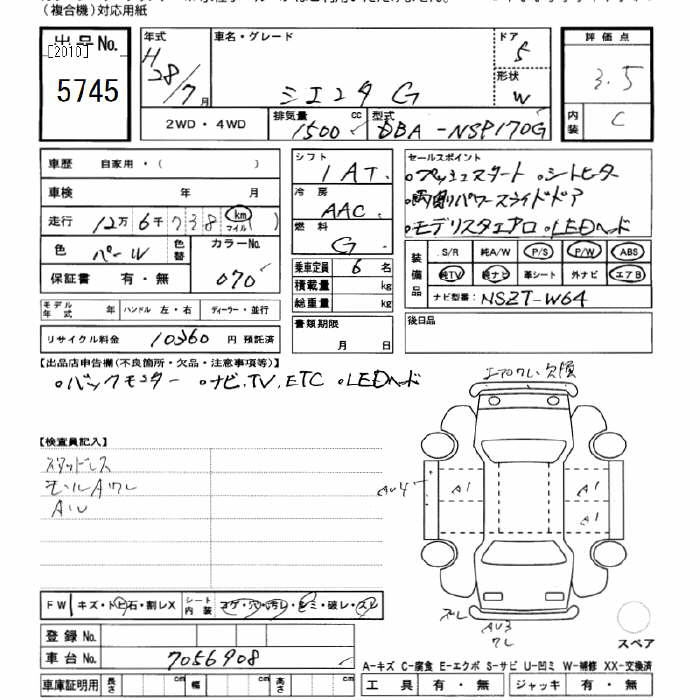 （複合機）対応用紙
出品No. 年式 車名・グレード ドア 評価点
[2010] H 28/7月 シエンタ G 5 3.5
5745 形状 W
2WD・4WD 排気量 1500 cc 型式 DBA-NSP170G 内装 C
車歴 自家用・( ) シフト 1 AT セールスポイント
車検 年 月 冷房 AAC 。プッシュスタート 。シートヒーター
走行 12万6千738 km マイル ( ) 燃料 G 。両側パワースライドドア
色 パール 色替 カラーNo. 070 。モデリスタエアロ 。LEDヘッド
保証書 有・無 乗車定員 6名 装備品 S/R 純A/W P/S P/W ABS
積載量 kg 純TV 純ナビ 革シート 外ナビ エアB
モデル年式 年 ハンドル 左・右 ディーラー・並行 総重量 kg ナビ型番: NSZT-W64
リサイクル料金 10360 円 預託済 書類期限 月 日 後日品
【出品店申告欄(不良箇所・欠品・注意事項等)】
。バックモニター 。ナビ.TV.ETC 。LEDヘッド
エアロワレ 欠損
【検査員記入】
スタッドレス
モールAワレ
AU
AU4 A1 A1
A1
FW キズ・トビ石・割レX シート内装 コゲ・穴・汚レ・シミ・破レ・スレ
スレ AU3
ワレ
登録No. スペア
車台No. 7056908
A-キズ C-腐食 E-エクボ S-サビ U-凹ミ W-補修 XX-交換済
車庫証明用 長さ cm 幅 cm 高さ cm 工具 有・無 ジャッキ 有・無